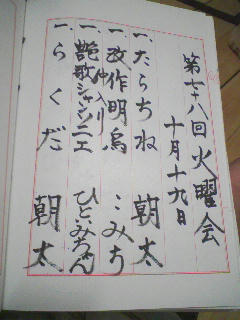 第七八回 火曜会
十月十九日
一、たらちね 朝太
一、改作明烏 こみち
一、艶歌シャンソニエ ひとみちゃん
一、らくだ 朝太